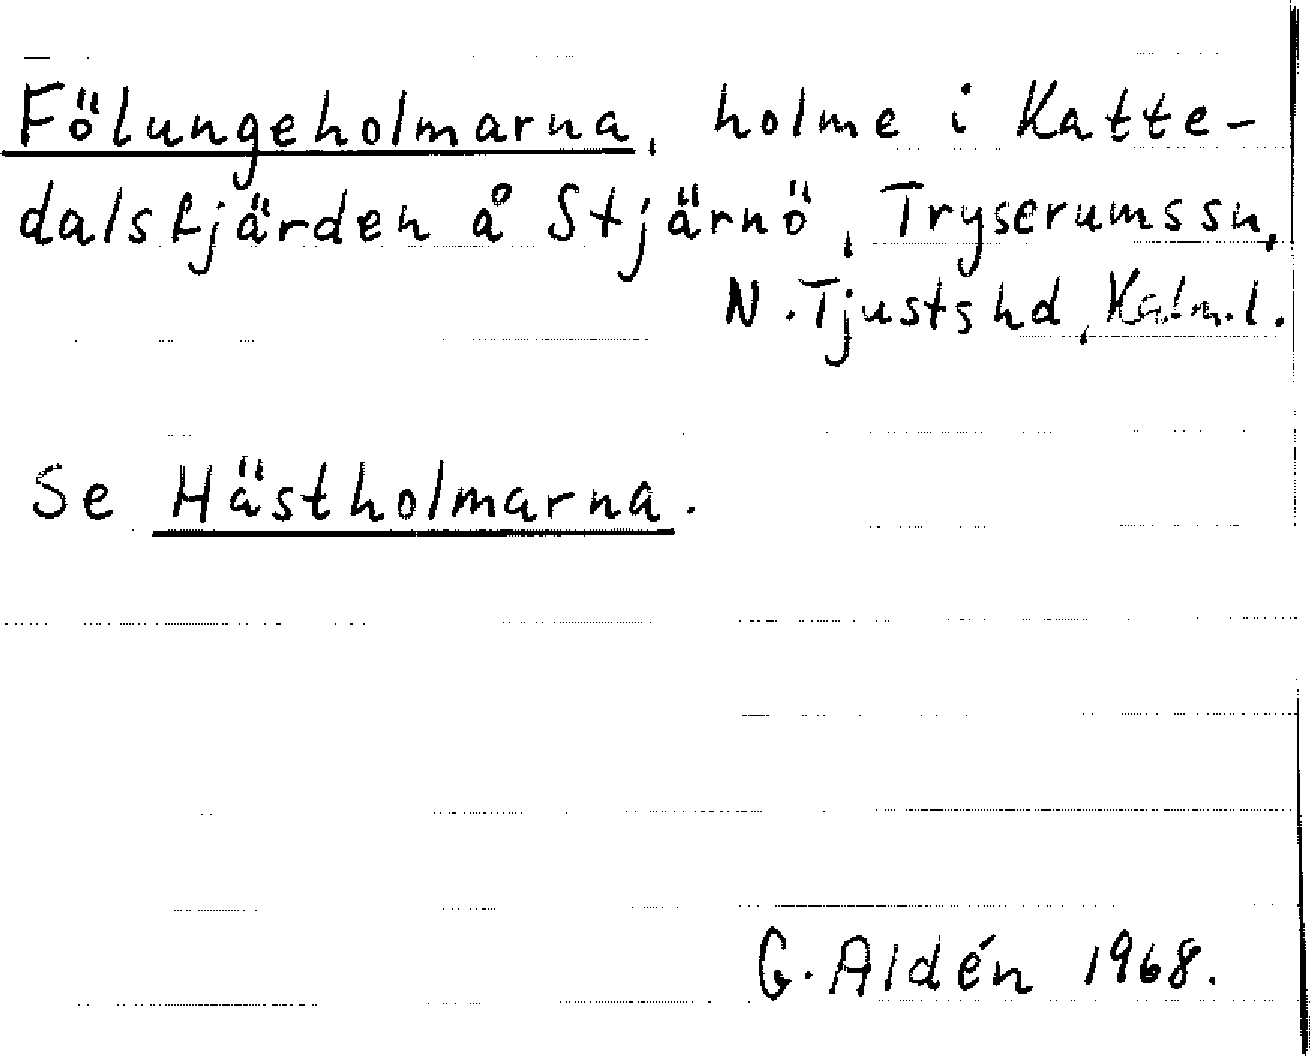 Fölungeholmarna, holme i Katte-
dalsfjärden å Stjärnö, Tryserumssn,
N. Tjustshd, Kalm.l.
Se Hästholmarna.
G. Aldén 1968.